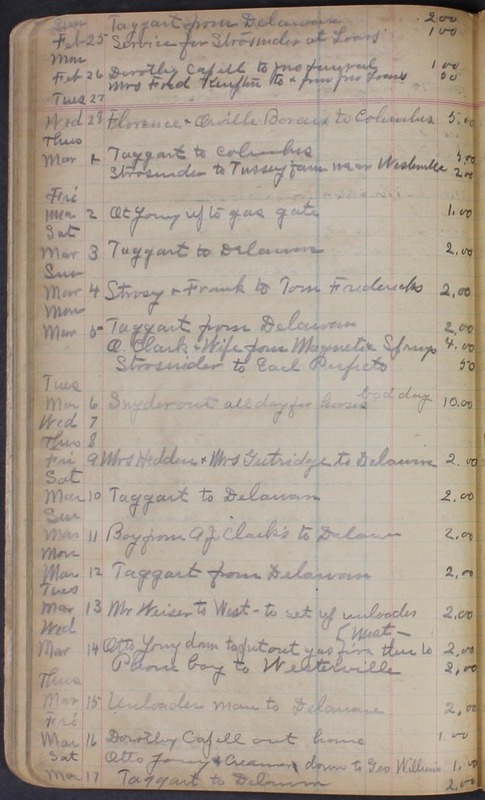 Sun Taggart from Delaware 2.00
Feb 25 Service for Strosnider at Loars 1 00
Mon
Feb 26 Dorothy Cafill to funeral 1 00
Mrs Fred to & from Loars 50
Tues 27
Wed 28 Florence & Orville to Columbus 5.00
Thus
Mar 1 Taggart to Columbus
Strosnider to Tussey farm near Westerville 2.00
Fri
Mar 2 up to gas gate 1.00
Sat
Mar 3 Taggart to Delaware 2.00
Sun
Mar 4 Strosy & Frank to Tom Fredericks 2,00
Mon
Mar 5 Taggart from Delaware 2,00
O. Clark & Wife from Magnetic Springs 4.00
Strosnider to Earl Perfects 50
Tues
Mar 6 Snyder out all day for horses bad day 10.00
Wed 7
Thus 8
Fri 9 Mrs Hedden & Mrs Gutridge to Delaware 2.00
Sat
Mar 10 Taggart to Delawar 2.00
Sun
Mar 11 Boy from A.J. Clark's to Delawar 2.00
Mon
Mar 12 Taggart from Delawar 2,00
Tues
Mar 13 Mr Weiser to West - to set up unloader 2.00
Wed West -
Mar 14 Otto Jony down to put out gas fire then to 2,00
Phone boy to Westerville 2,00
Thus
Mar 15 Unloader man to Delaware 2,00
Fri
Mar 16 Dorothy Cafill out home 1.00
Sat Otto Jony & Creamer down to Geo Williams 1.00
Mar 17 Taggart to Delawar 2.00